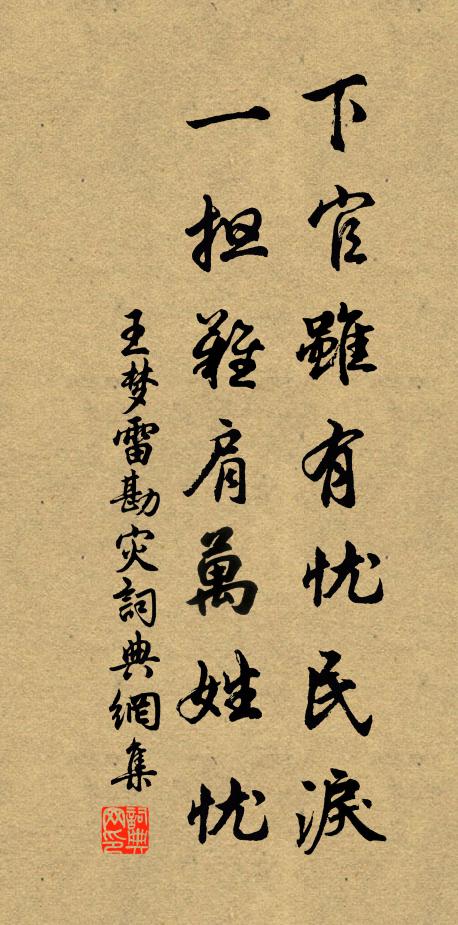 下官雖有忧民淚
一担難肩萬姓忧
王梦雷勘灾詞典網集
詞典网印